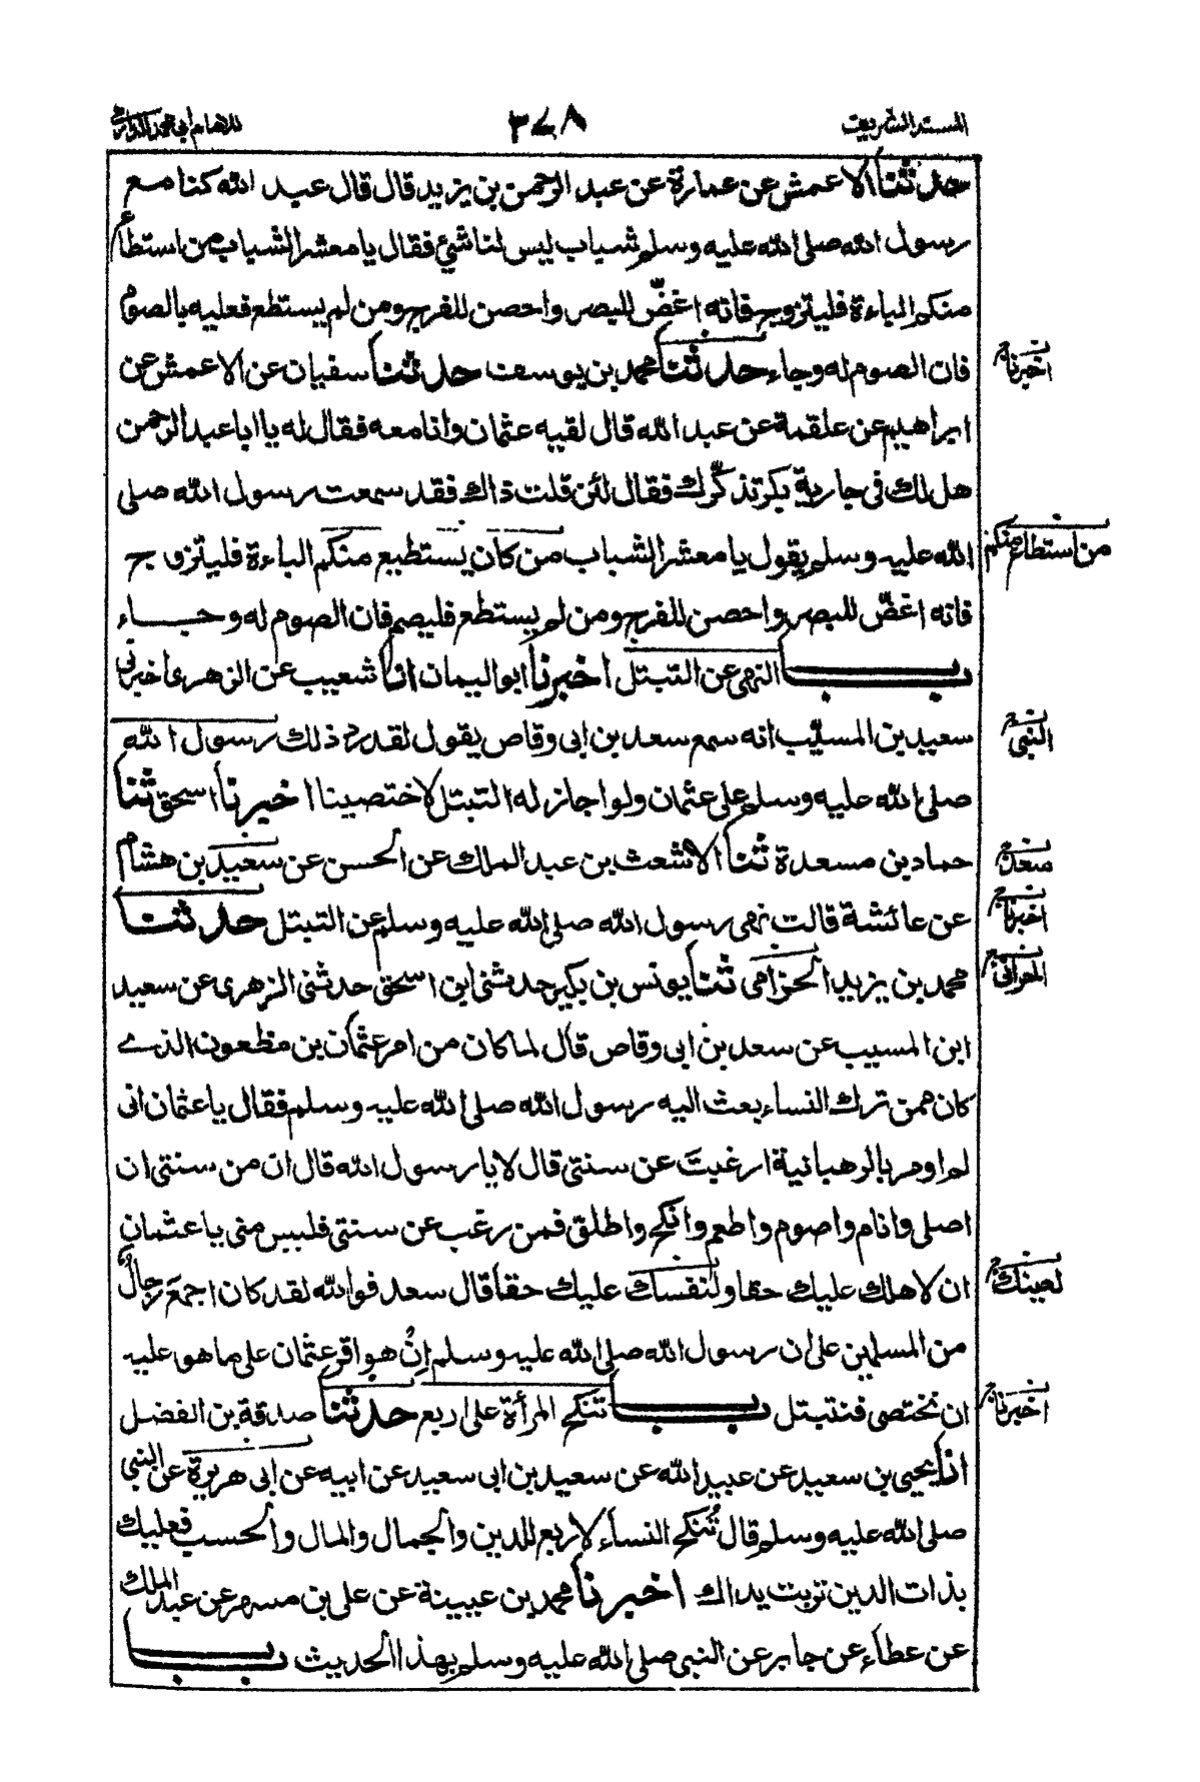 المسند الشريف
٣٧٨
للامام ابي محمد الدارمي
حدثنا الاعمش عن عمارة عن عبد الرحمن بن يزيد قال قال عبد الله كنا مع
رسول الله صلى الله عليه وسلم شباب ليس لنا شئ فقال يا معشر الشباب من استطاع
منكم الباءة فليتزوج فانه اغضّ للبصر واحصن للفرج ومن لم يستطع فعليه بالصوم
فان الصوم له وجاء حدثنا محمد بن يوسف حدثنا سفيان عن الاعمش عن
اخبرنا
ابراهيم عن علقمة عن عبد الله قال لقيه عثمان وانا معه فقال له يا ابا عبد الرحمن
هل لك في جارية بكر تذكّرك فقال لئن قلت ذاك فقد سمعت رسول الله صلى
الله عليه وسلم يقول يا معشر الشباب من كان يستطيع منكم الباءة فليتزوج
من استطاع منكم
فانه اغضّ للبصر واحصن للفرج ومن لم يستطع فليصم فان الصوم له وجاء
باب النهي عن التبتل اخبرنا ابو اليمان انا شعيب عن الزهري اخبرني
سعيد بن المسيّب انه سمع سعد بن ابي وقاص يقول لقد رد ذلك رسول الله
النبي
صلى الله عليه وسلم على عثمان ولو اجاز له التبتل لاختصينا اخبرنا اسحق ثنا
حماد بن مسعدة ثنا الاشعث بن عبد الملك عن الحسن عن سعيد بن هشام
سعد
عن عائشة قالت نهى رسول الله صلى الله عليه وسلم عن التبتل حدثنا
اخبرنا
محمد بن يزيد الحزامي ثنا يونس بن بكير حدثني ابن اسحق حدثني الزهري عن سعيد
ابن المسيب عن سعد بن ابي وقاص قال لما كان من امر عثمان بن مظعون الذي
كان ممن ترك النساء بعث اليه رسول الله صلى الله عليه وسلم فقال يا عثمان اني
لم اومر بالرهبانية ارغبتَ عن سنتي قال لا يا رسول الله قال ان من سنتي ان
اصلي وانام واصوم واطعم وانكح واطلق فمن رغب عن سنتي فليس مني يا عثمان
ان لاهلك عليك حقا ولنفسك عليك حقا قال سعد فوالله لقد كان اجمع رجالٌ
لعينك
من المسلمين على ان رسول الله صلى الله عليه وسلم اِنْ هو اقر عثمان على ما هو عليه
ان نختصي فنتبتل باب تنكح المرأة على اربع حدثنا صدقة بن الفضل
اخبرنا
انا يحيى بن سعيد عن عبيد الله عن سعيد بن ابي سعيد عن ابيه عن ابي هريرة عن النبي
صلى الله عليه وسلم قال تُنكح النساء لاربع للدين والجمال والمال والحسب فعليك
بذات الدين تربت يداك اخبرنا محمد بن عيينة عن علي بن مسهر عن عبد الملك
عن عطاء عن جابر عن النبي صلى الله عليه وسلم بهذا الحديث باب